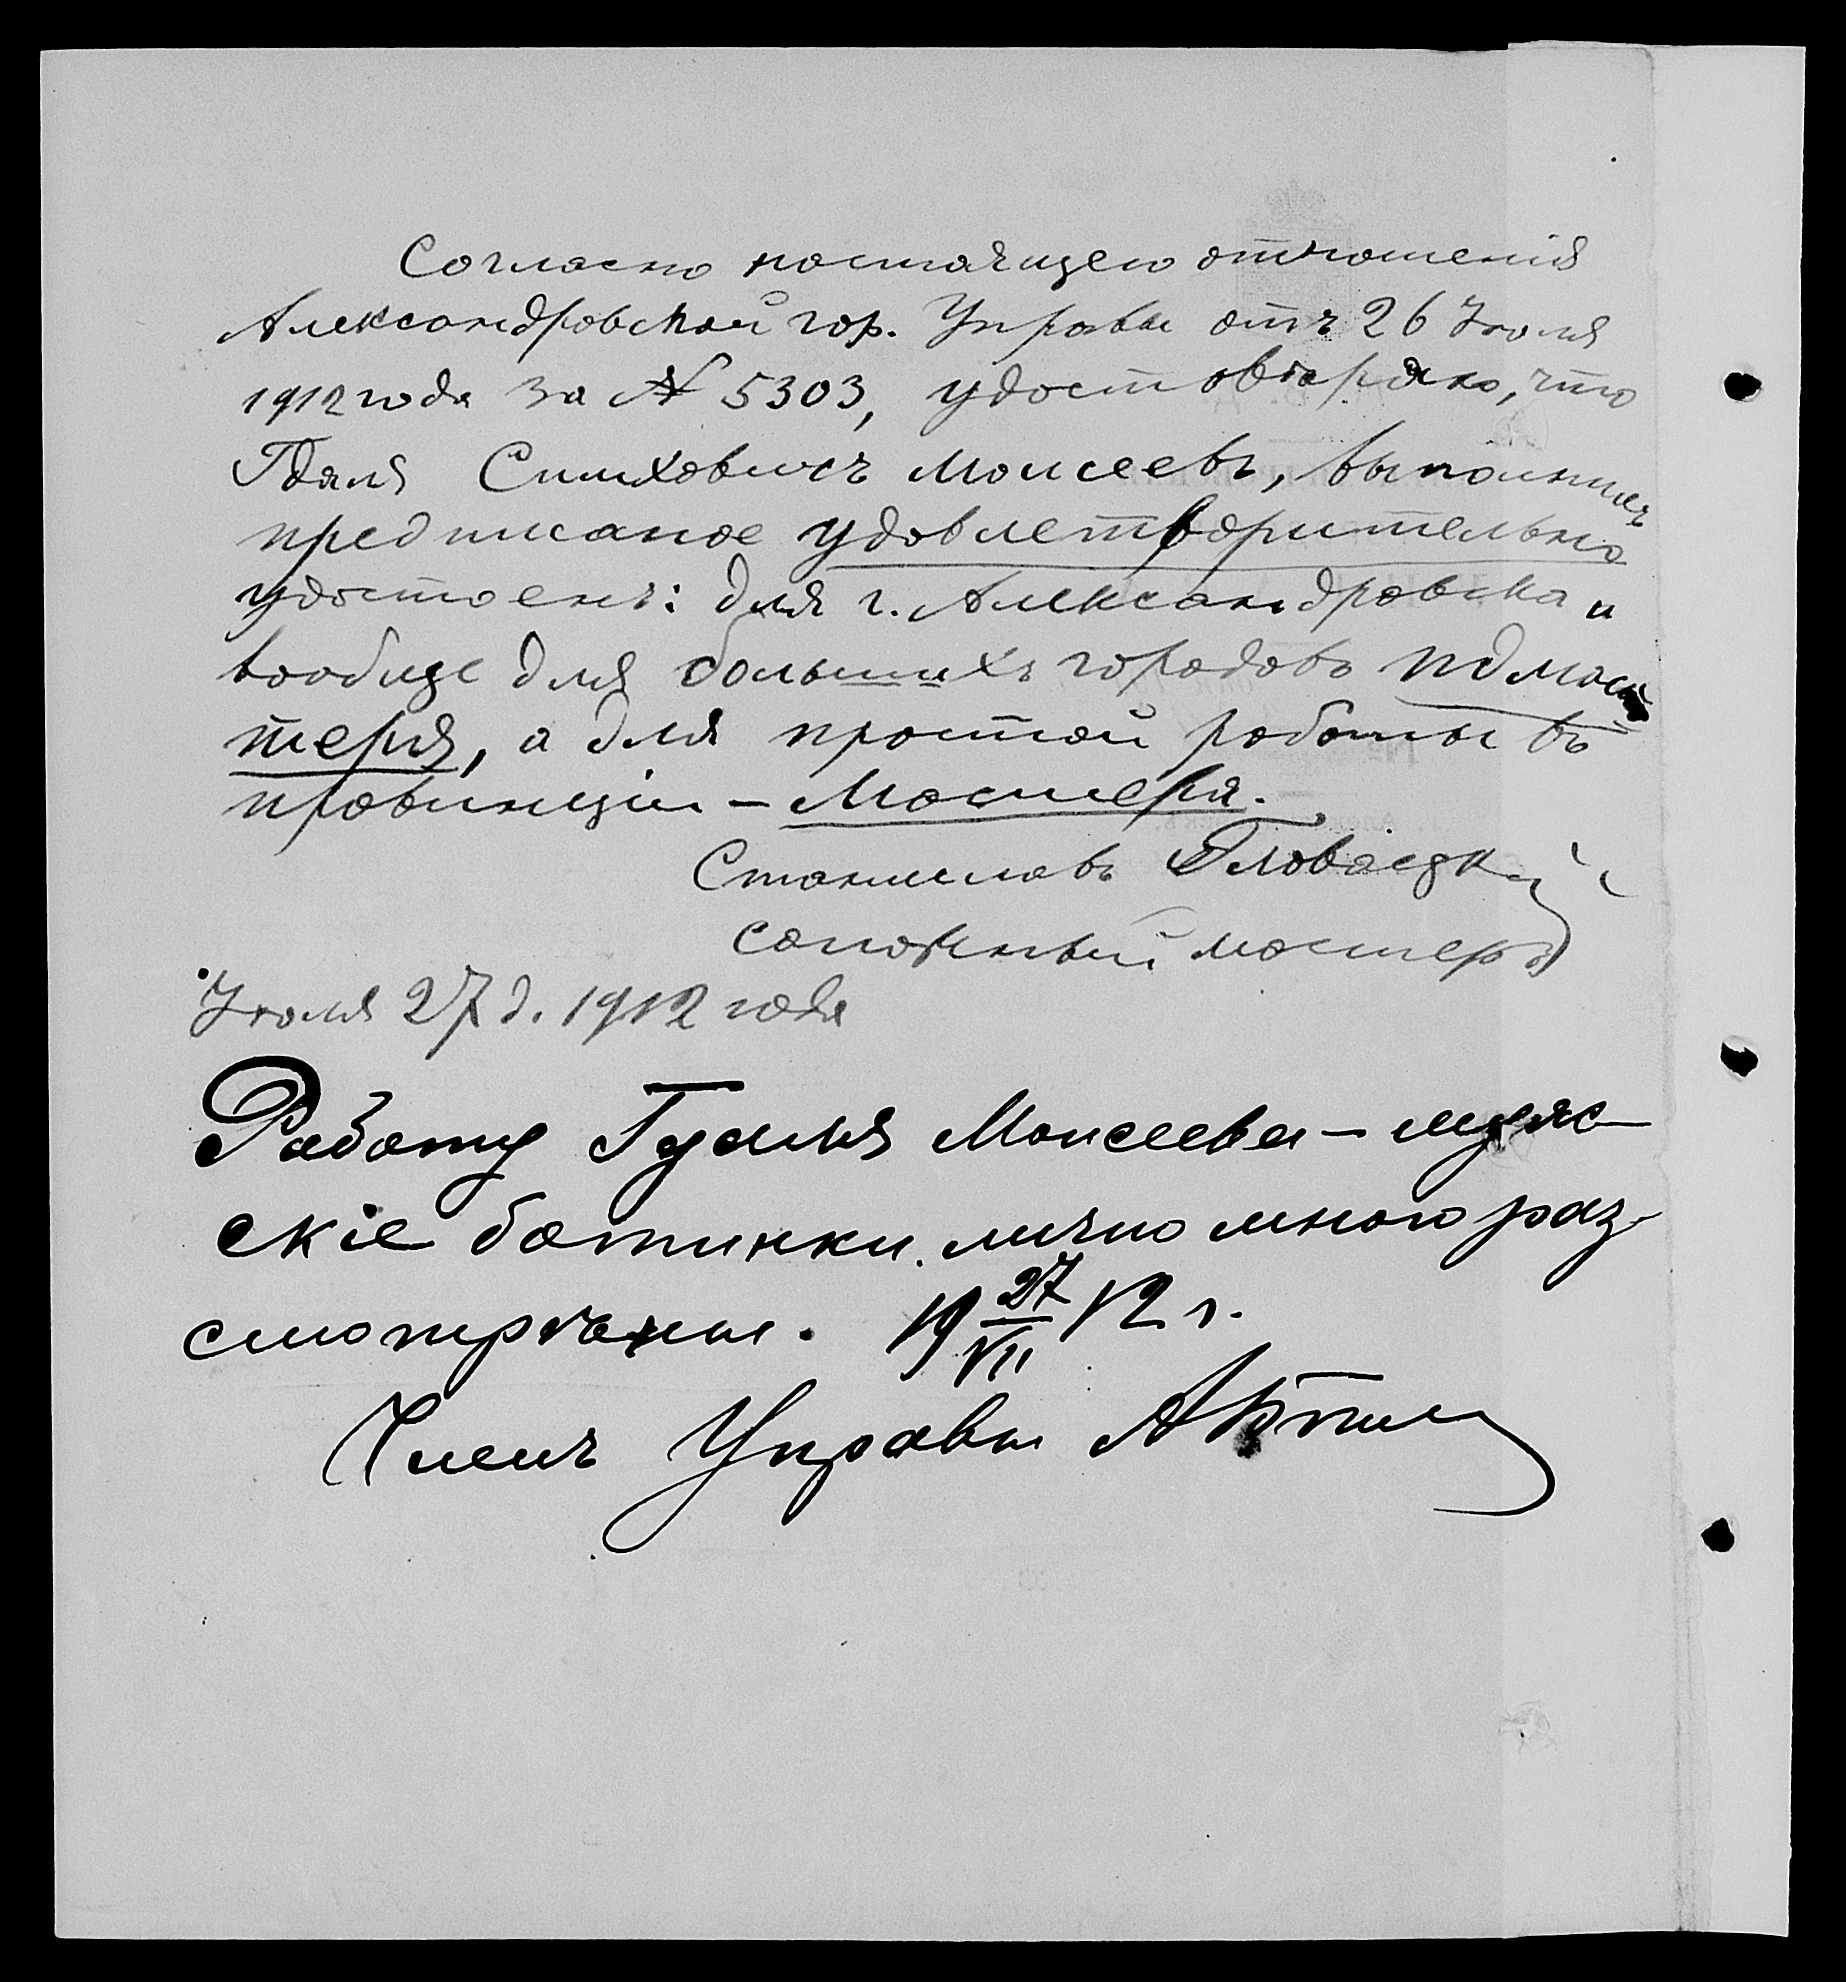 Согласно настоящего отношенія
Александровской гор. Управы отъ 26 Іюля
1912 года за № 5303, удостовѣряю, что
Гдаля Симховичъ Моисеевъ, выполнилъ
предписаное удовлетворительно
удостоенъ: для г. Александровска и
вообще для большихъ городовъ подмас
терья, а для простой работы въ
провинціи – Мастера.
Станиславъ Гловацкій
сапожный мастеръ
Іюля 27 д. 1912 года
Работу Гдаля Моисеева – мужс
скіе ботинки лично мною раз-
смотрѣны. 19 27/VII 12 г.
Членъ Управы